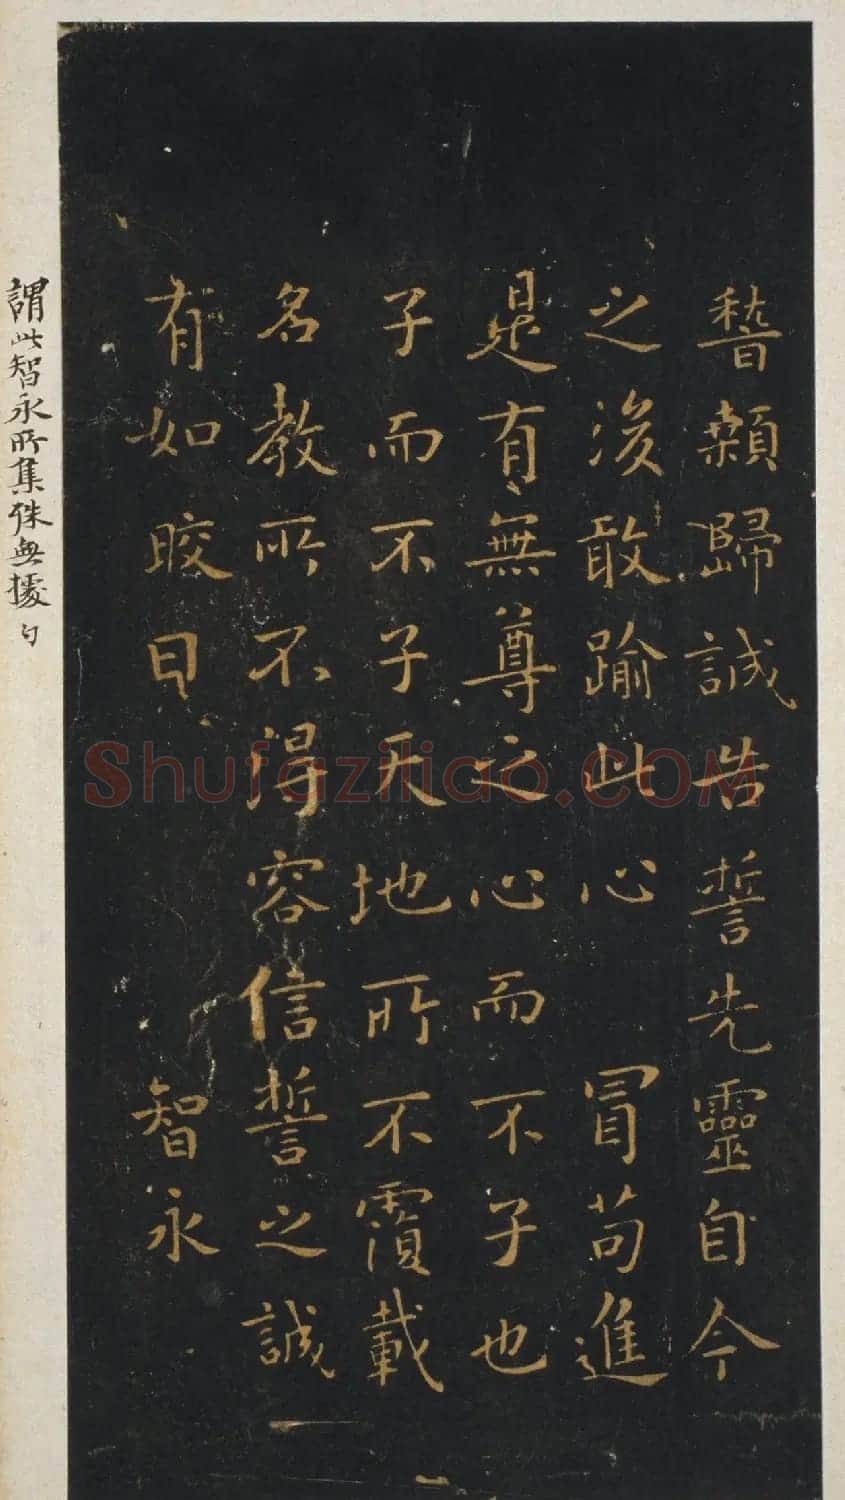 稽顙歸誠告誓先靈自今
之後敢踰此心 冒苟進
是有無尊之心而不子也
子而不子天地所不覆載
名教所不得容信誓之誠
有如晈日 智永
謂此智永所集殊無據
Shufaziliao.COM